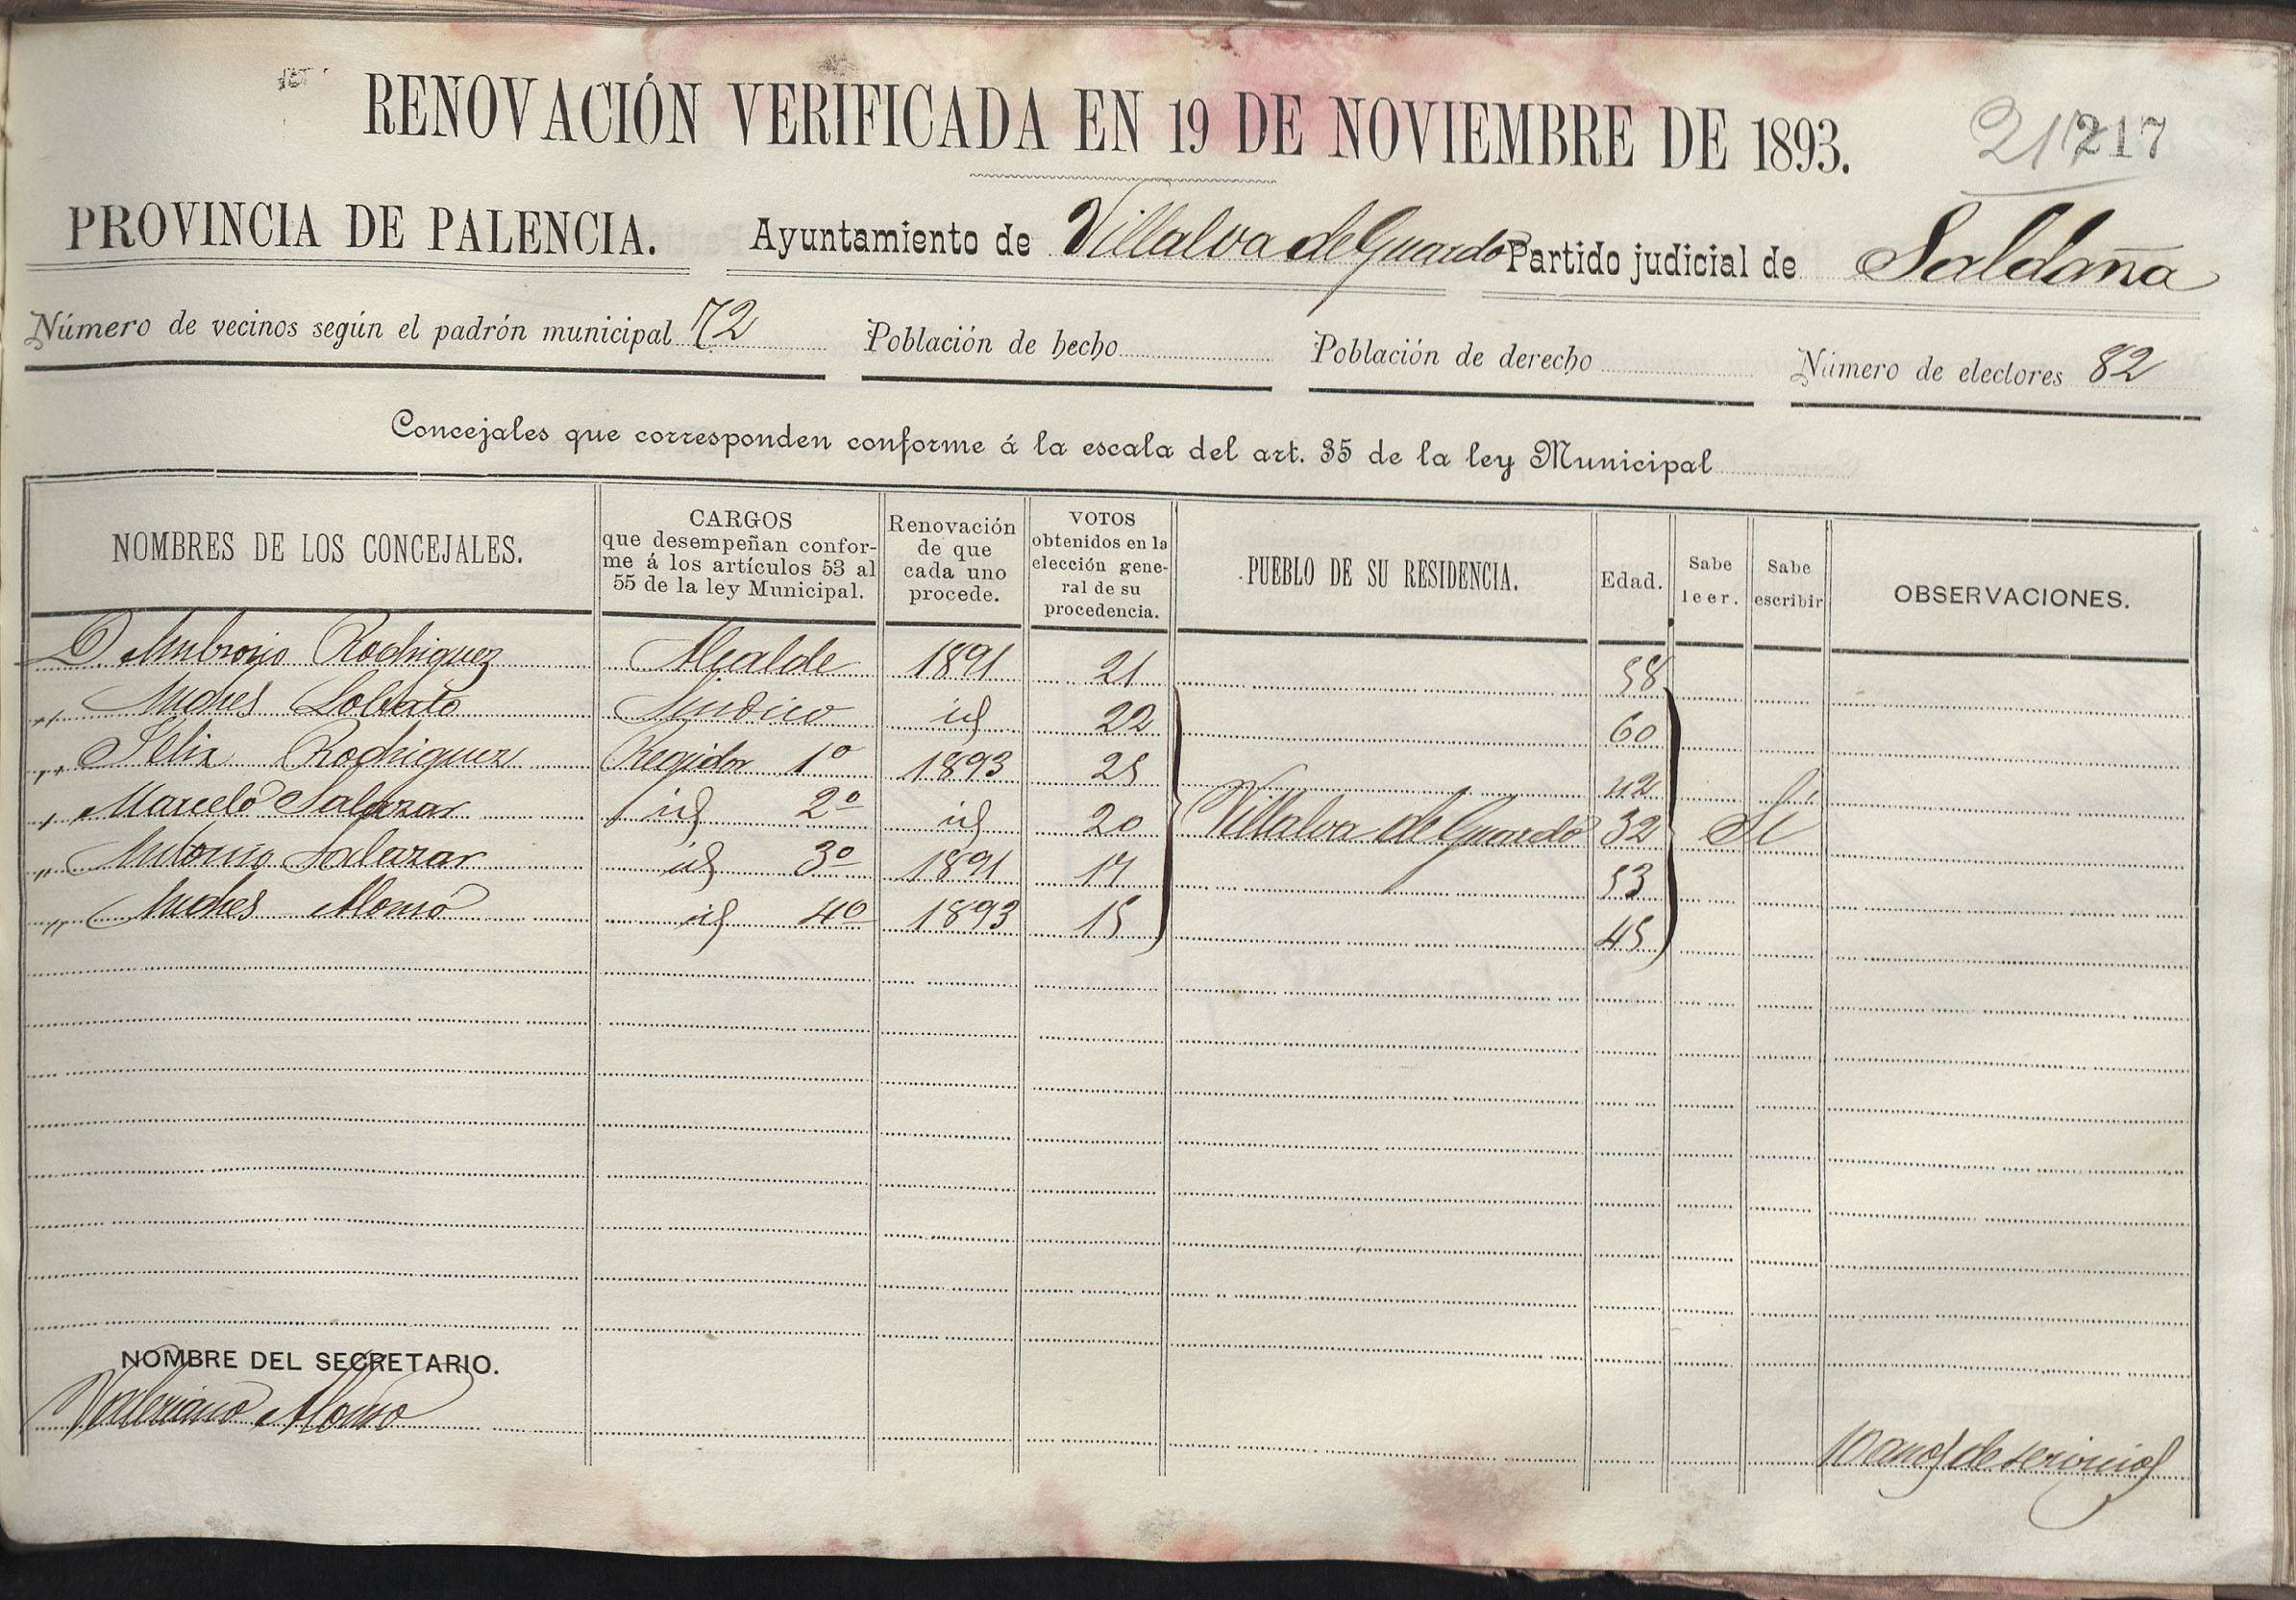 RENOVACIÓN VERIFICADA EN 19 DE NOVIEMBRE DE 1893.
217 217
PROVINCIA DE PALENCIA. Ayuntamiento de Villalva de Guardo Partido judicial de Saldaña
Número de vecinos según el padrón municipal 72 Población de hecho Población de derecho Número de electores 82
Concejales que corresponden conforme á la escala del art. 35 de la ley Municipal
NOMBRES DE LOS CONCEJALES.
CARGOS
que desempeñan confor-
me á los artículos 53 al
55 de la ley Municipal.
Renovación
de que
cada uno
procede.
VOTOS
obtenidos en la
elección gene-
ral de su
procedencia.
PUEBLO DE SU RESIDENCIA.
Edad.
Sabe
leer.
Sabe
escribir
OBSERVACIONES.
D. Ambrosio Rodriguez Alcalde 1891 21 58
" Andres Lobato Sindico id 22 60
" Felix Rodriguez Regidor 1º 1893 25 42 Si
" Marcelo Salazar id 2º id 20 Villalva de Guardo 32 Si
" Antonio Salazar id 3º 1891 17 53
" Andres Alonso id 4º 1893 15 45
NOMBRE DEL SECRETARIO.
Valeriano Alonso
10 años de servicios